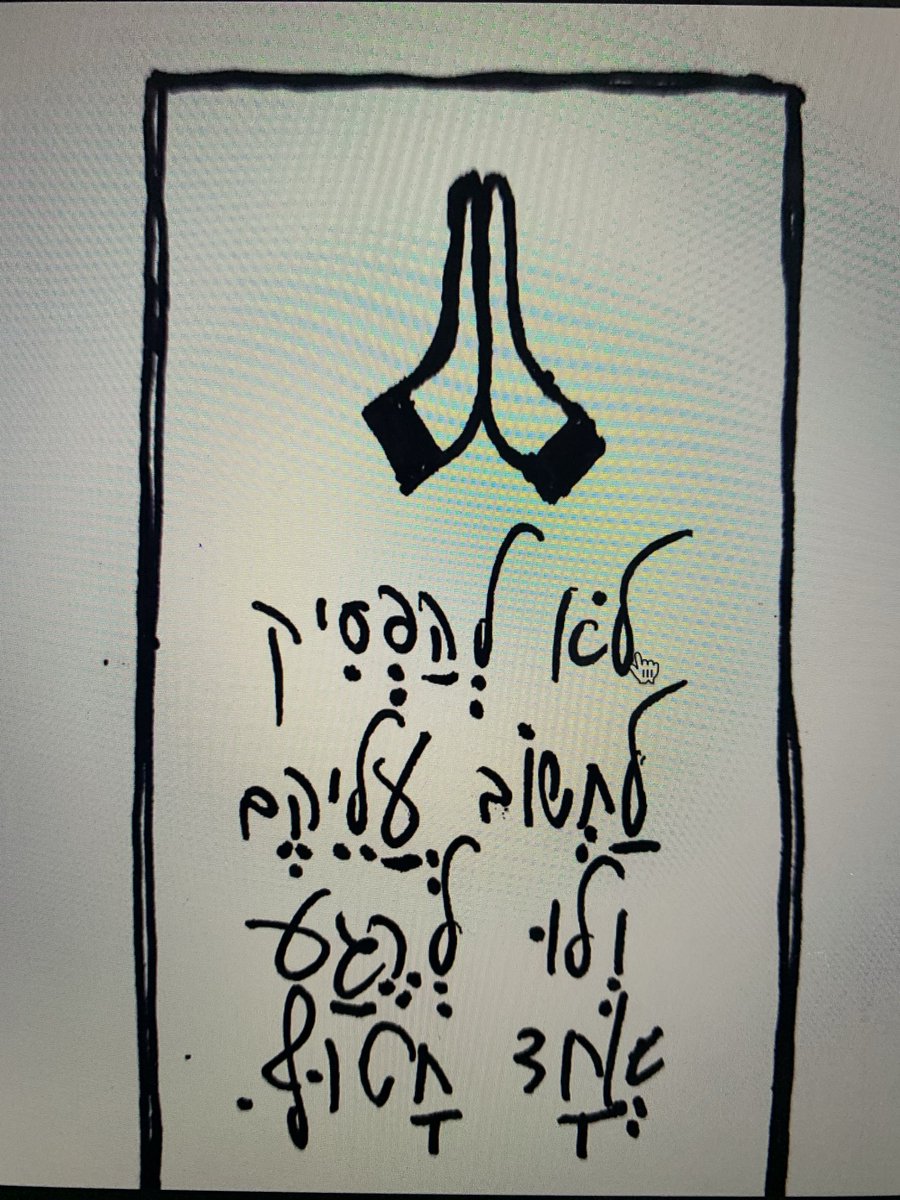 לֹא לְהַפְסִיק
לַחְשוֹב עֲלֵיהֶם
וְלוּ לְרֶגַע
אֶחָד חָטוּף.